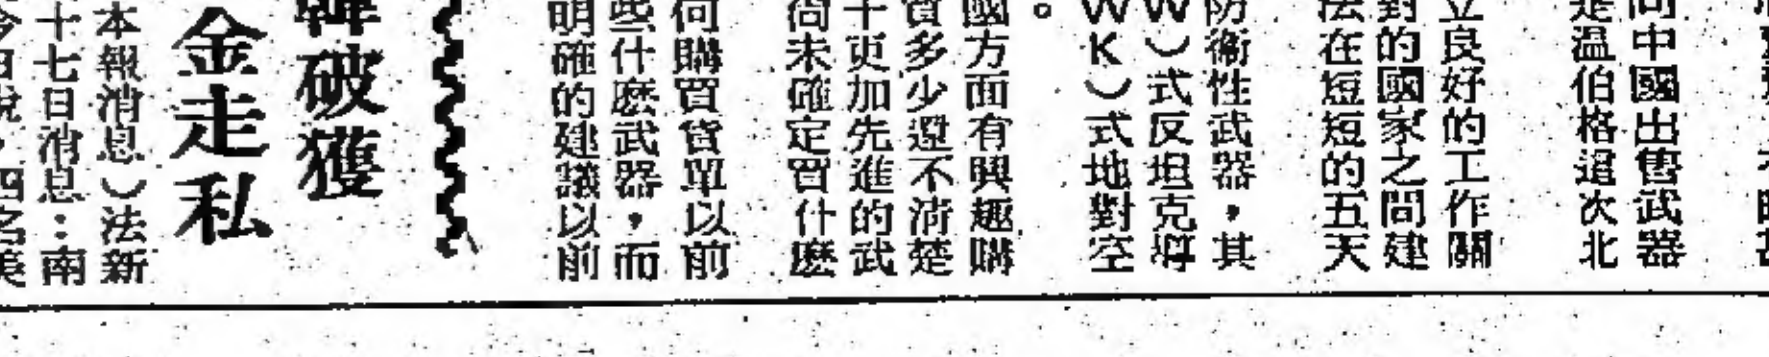 向中國出售武器
是温伯格這次北
立良好的工作關
對的國家之間建
法在短短的五天
防衞性武器，其
W）式反坦克導
WK）式地對空
。
國方面有興趣購
買多少還不清楚
十更加先進的武
尚未確定買什麽
何購買貨單以前
些什麽武器，而
明確的建議以前
韓破獲
金走私
本報消息）法新
十七日消息：南
今日說，四名美